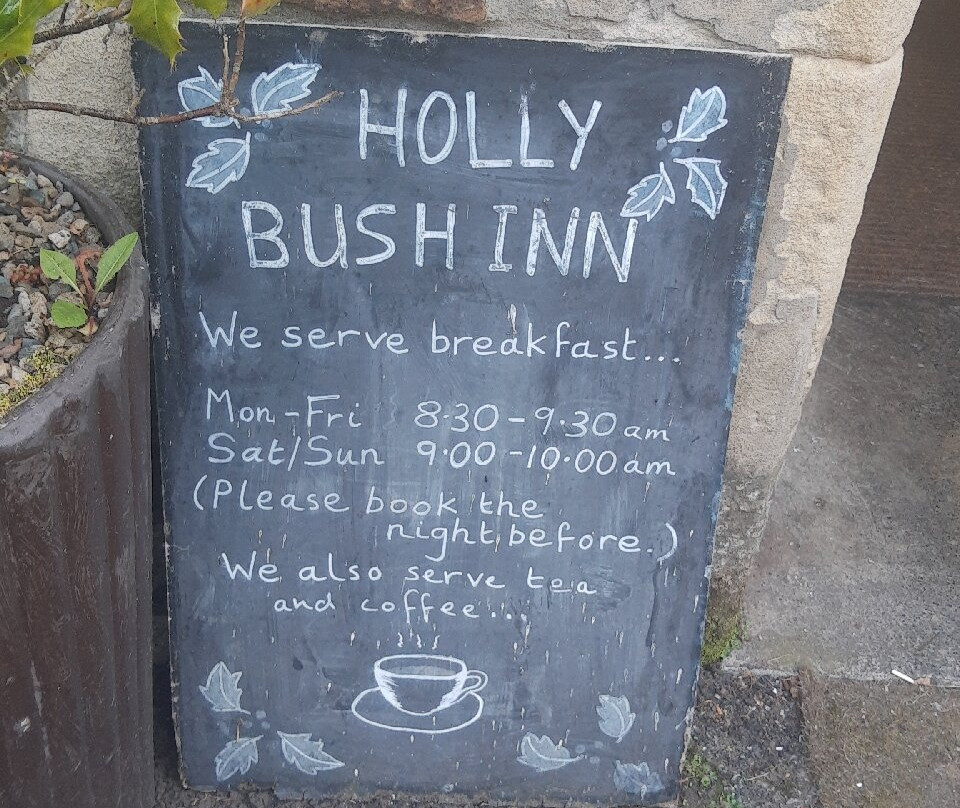 HOLLY
BUSH INN
We serve breakfast...
Mon-Fri 8·30-9·30am
Sat/Sun 9·00-10·00am
(Please book the
night before.)
We also serve tea
and coffee...